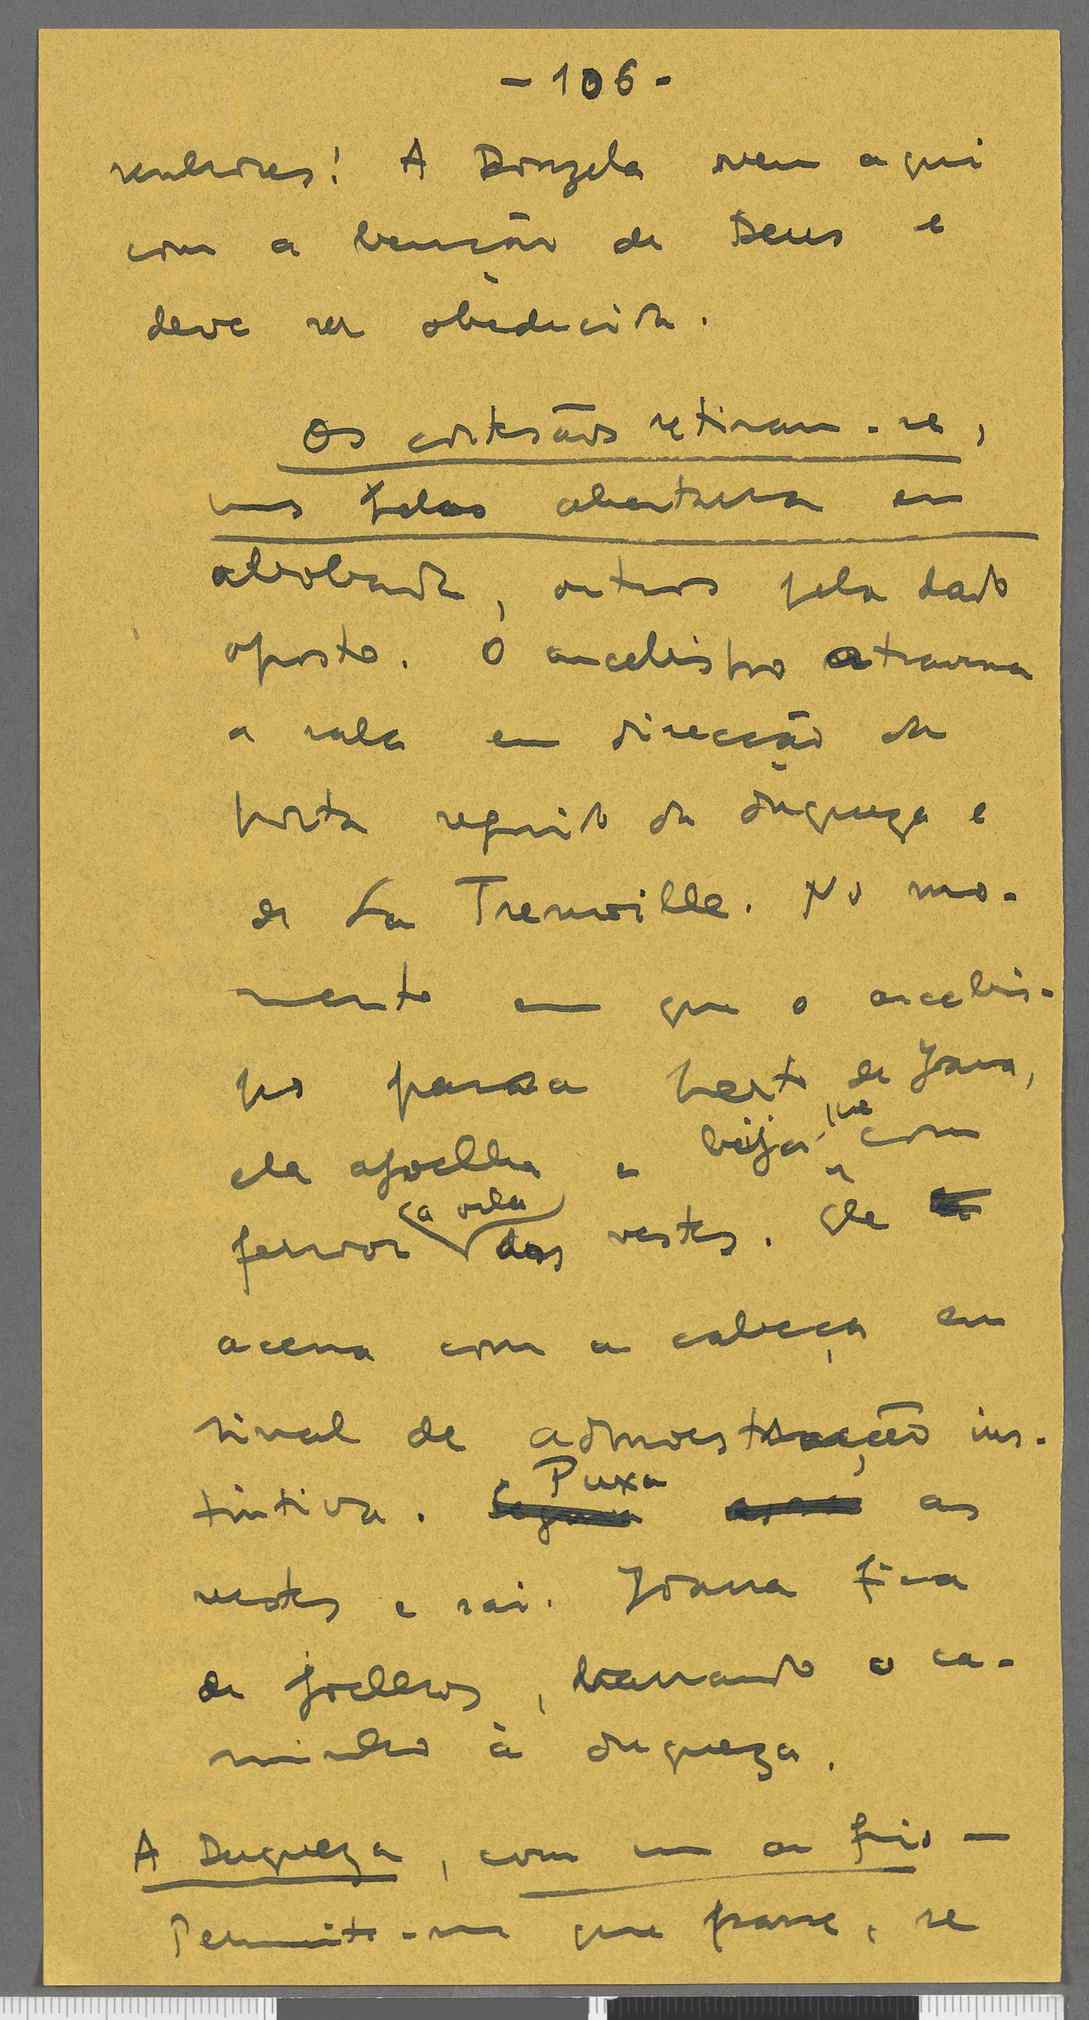 - 106 -
senhores! A Donzela vem aqui
com a benção de Deus e
deve ser obedecida.
Os cortesãos retiram-se,
uns pela abertura em
abobada, outros pelo lado
oposto. O arcebispo atravessa
a sala em direcção da
porta seguido da duqueza e
de La Tremoille. No mo-
mento em que o arcebis-
po passa perto de Joana,
ela ajoelha e beija-lhe com
fervor (a orla) das vestes. Ele
acena com a cabeça em
sinal de admoestação ins-
tintiva. Puxa as
vestes e sai. Joana fica
de joelhos, barrando o ca-
minho à duqueza.
A Duqueza, com um ar frio -
Permite-me que passe, se